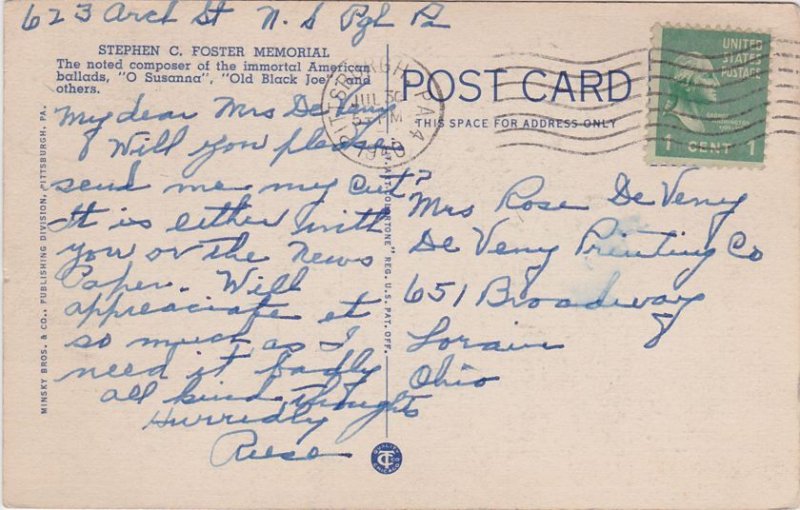 623 Arch St N. S Pgh Pa
STEPHEN C. FOSTER MEMORIAL
The noted composer of the immortal American
ballads, "O Susanna", "Old Black Joe", and
others.
My dear Mrs DeVeny
Will you please
send me my cut?
It is either with
you or the News
Paper. Will
appreaciate et
so much as I
need it badly
all kind thoughts
Hurridly
Reese
MINSKY BROS. & CO., PUBLISHING DIVISION, PITTSBURGH, PA.
"C.T. ART-COLORTONE" REG. U.S. PAT. OFF.
POST CARD
THIS SPACE FOR ADDRESS ONLY
PITTSBURGH, PA. 4
JUL 30
PM
1940
UNITED
STATES
POSTAGE
1 CENT 1
Mrs Rose DeVeny
De Veny Printing Co
651 Broadway
Lorain
Ohio
CHICAGO